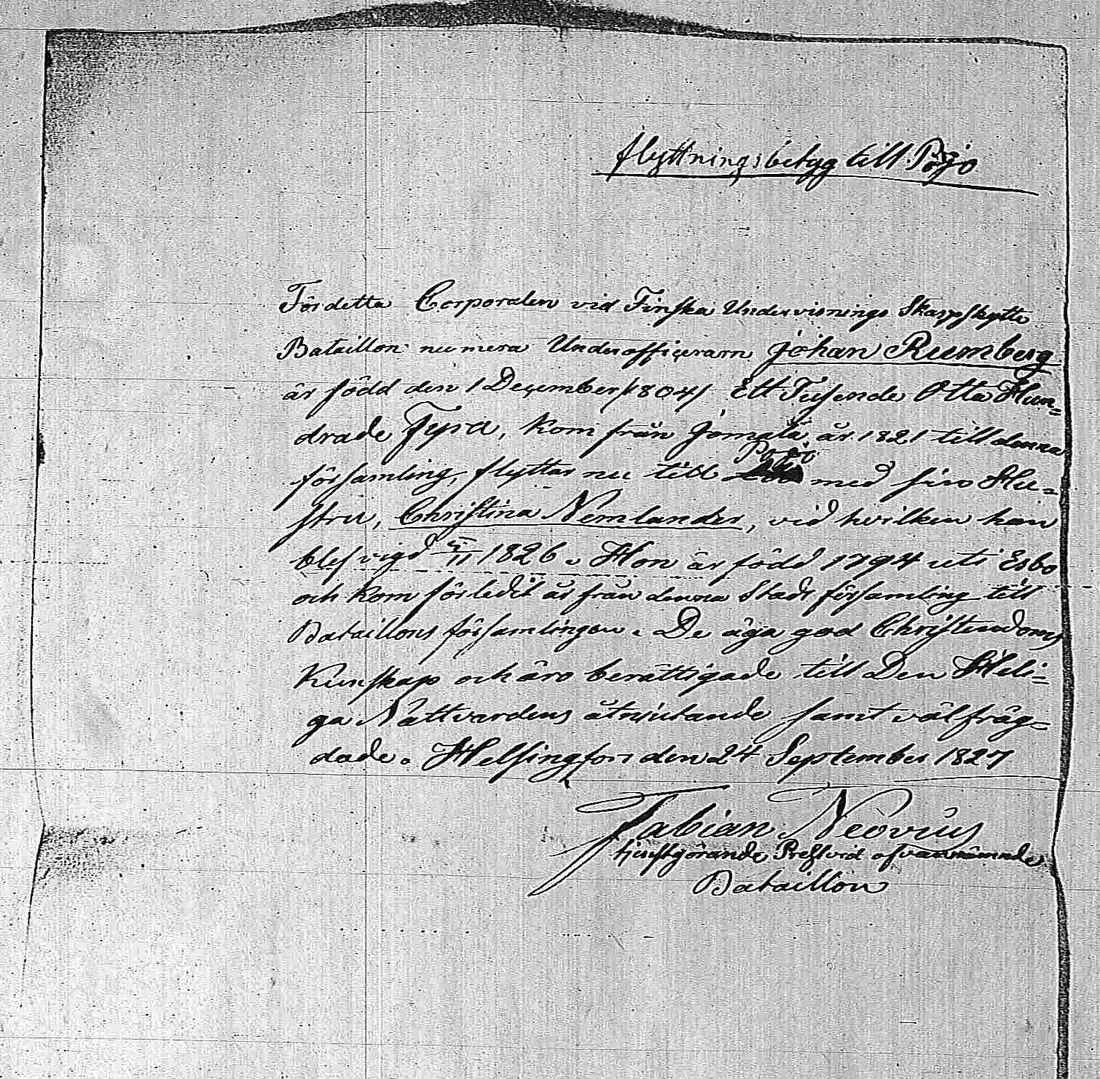 flyttningsbetyg till Pojo
Fördetta Corporalen vid Finska Undervisnings Skarpskytte
Bataillon numera Underofficeraren Johan Rumberg
är född den 1 December /1804/ Ett Tusende Otta Hun-
drade Fyra, kom från Jomala år 1821 till denna
församling, flyttar nu till Pojo med sin Hu-
stru, Christina Nemlander, vid hvilken han
blef vigd 5/11 1826. Hon är född 1794 uti Esbo
och kom förledit år från denna Stads församling till
Bataillons församlingen. De äga god Christendoms
Kunskap och äro berättigade till Den Heli-
ga Nattvardens åtnjutande samt väl fräg-
dade. Helsingfors den 24 September 1827
Fabian Neovius
tjenstgörande Prest vid ofvannämnde
Bataillon